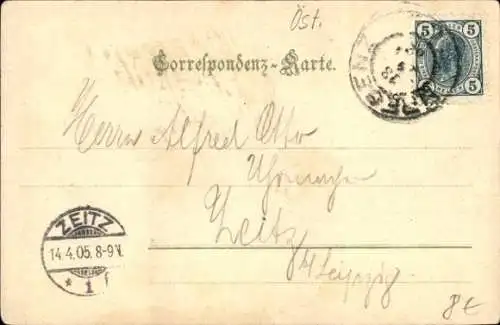 Öst.
5 5
Correspondenz-Karte.
5 5
BREGENZ
Herrn Alfred Otto
Zeitz
b/Leipzig
ZEITZ
14.4.05.8-9V.
* 1 f
8€